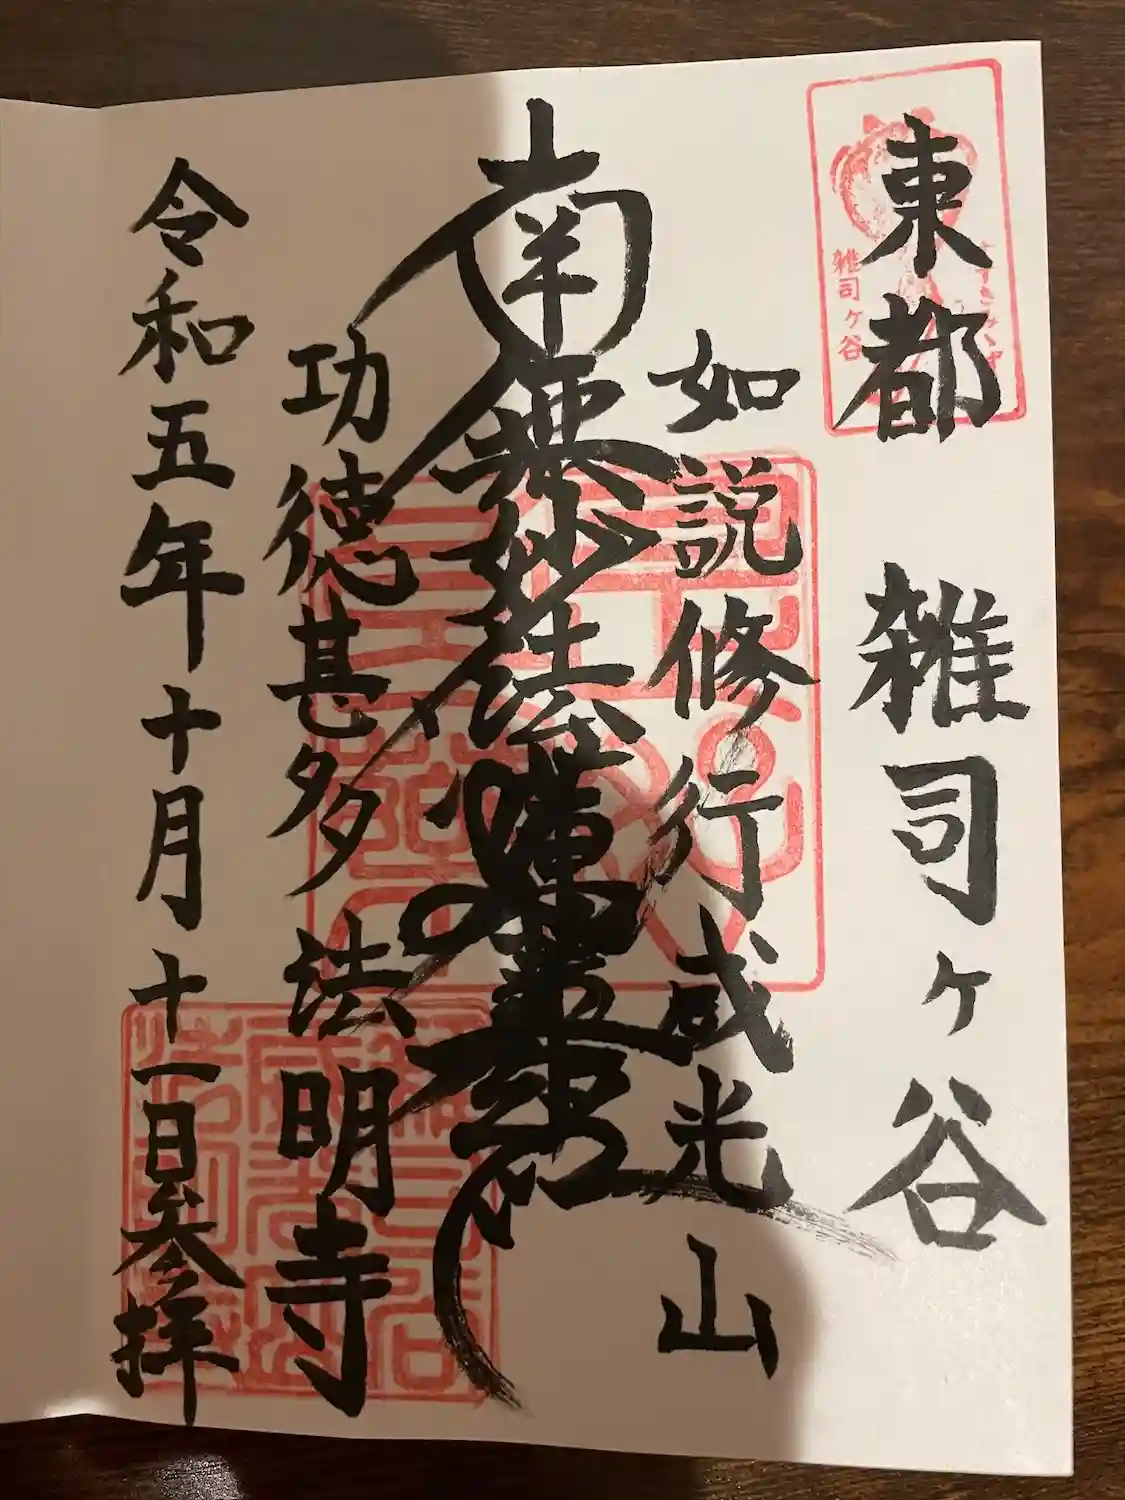 東都 雑司ヶ谷
雑司ヶ谷
如説修行 威光山
南無妙法蓮華経
功徳甚多 法明寺
令和五年十月十一日参拝